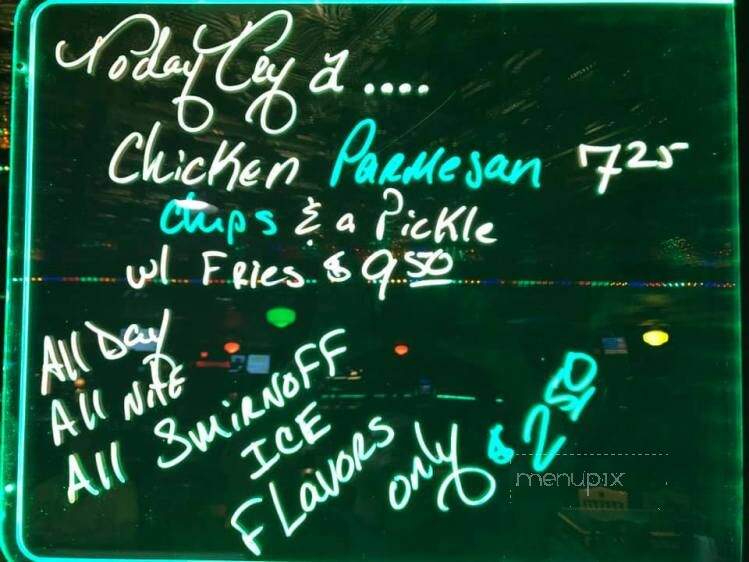 Today Try a ....
Chicken Parmesan 7 25
Chips & a Pickle
w/ Fries $ 9 50
All Day
All Nite
All Smirnoff
Ice
Flavors
only $ 2 50
menupix